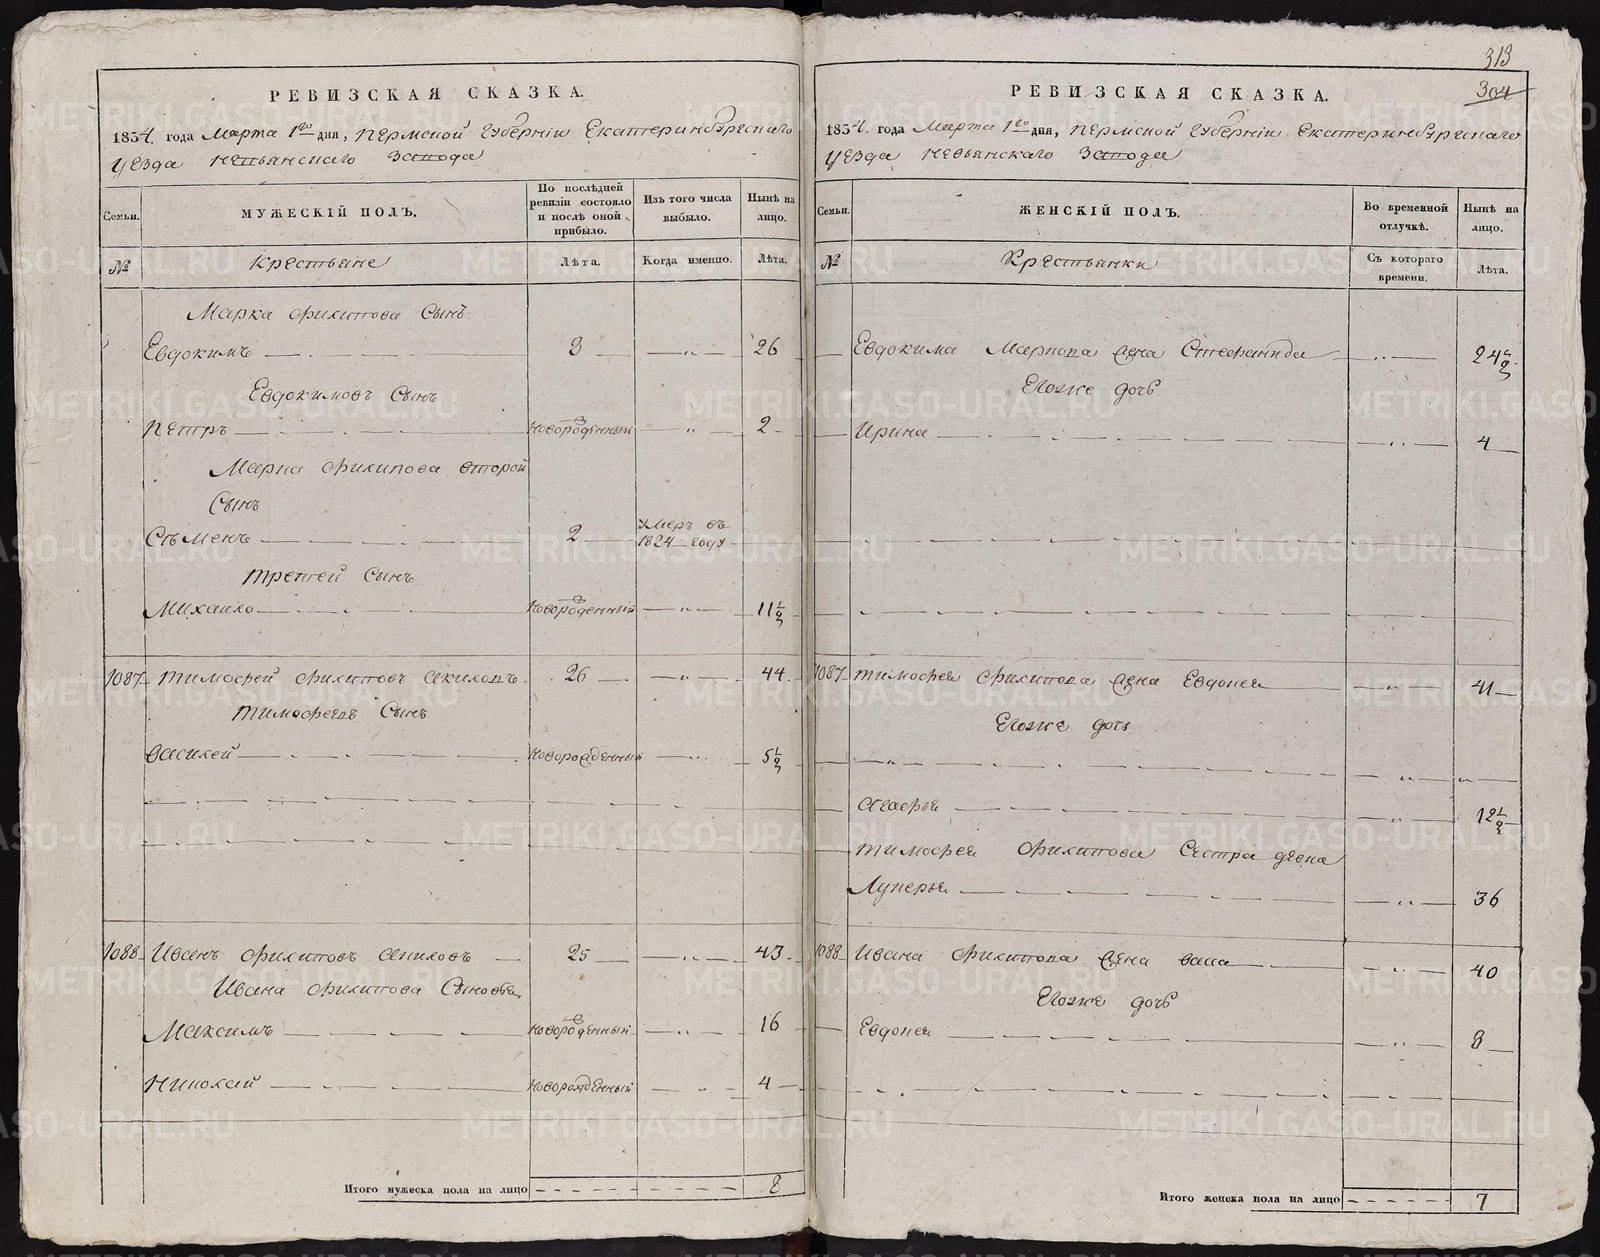 РЕВИЗСКАЯ СКАЗКА.
1834 года Марта 1го дня, Пермской Губернiи Екатеринбургскаго
уезда Невьянскаго Завода
Семьи.
МУЖЕСКIЙ ПОЛЪ.
По послѣдней ревизiи состояло и послѣ оной прибыло.
Изъ того числа выбыло.
Нынѣ на лицо.
№
Крестьяне
Лѣта.
Когда именно.
Лѣта.
Марка Филипова Сынъ
Евдокимъ 3 — „ — 26
Евдокимовъ Сынъ
Петръ Новорожденный — „ — 2
Марка Филипова второй
Сынъ
Сѣменъ 2 Умеръ въ 1824 году
Третей Сынъ
Михаило Новорожденный — „ — 11½
1087 Тимофей Филиповъ 26 — „ — 44
Тимофеевъ Сынъ
Василей Новорожденный — „ — 5½
1088 Иванъ Филиповъ 25 — „ — 43
Ивана Филипова Сыновья
Максимъ Новорожденный — „ — 16
Николай Новорожденный — „ — 4
Итого мужеска пола на лицо 8
313
304
РЕВИЗСКАЯ СКАЗКА.
1834 года Марта 1го дня, Пермской Губернiи Екатеринбургскаго
уезда Невьянскаго Завода
Семьи.
ЖЕНСКIЙ ПОЛЪ.
Во временной отлучкѣ.
Нынѣ на лицо.
№
Крестьянки
Съ котораго времени.
Лѣта.
Евдокима Маркова жена Стефанида — „ — 24½
Егоже дочь
Ирина — „ — 4
1087 Тимофея Филипова жена Евдокея — „ — 41
Егоже дочь
— „ — „ — „
Агафья — „ — 12½
Тимофея Филипова Сестра девка
Лукерья — „ — 36
1088 Ивана Филипова жена — „ — 40
Егоже дочь
Евдокея — „ — 8
Итого женска пола на лицо 7
METRIKI.GASO-URAL.RU